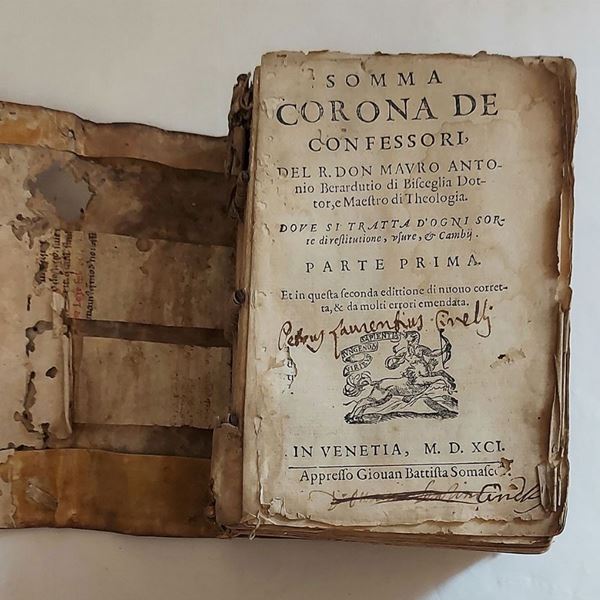 SOMMA
CORONA DE
CONFESSORI,
DEL R. DON MAVRO ANTO-
nio Berardutio di Bisceglia Dot-
tor, e Maestro di Theologia.
DOVE SI TRATTA D'OGNI SOR-
te di restitutione, vsure, & Cambij.
PARTE PRIMA.
Et in questa seconda edittione di nuouo corret-
ta, & da molti errori emendata.
Petrus Laurentius Cinelli
SAPIENTIA
IVNGENDA
VIRIB
IN VENETIA, M. D. XCI.
Appresso Giouan Battista Somasco